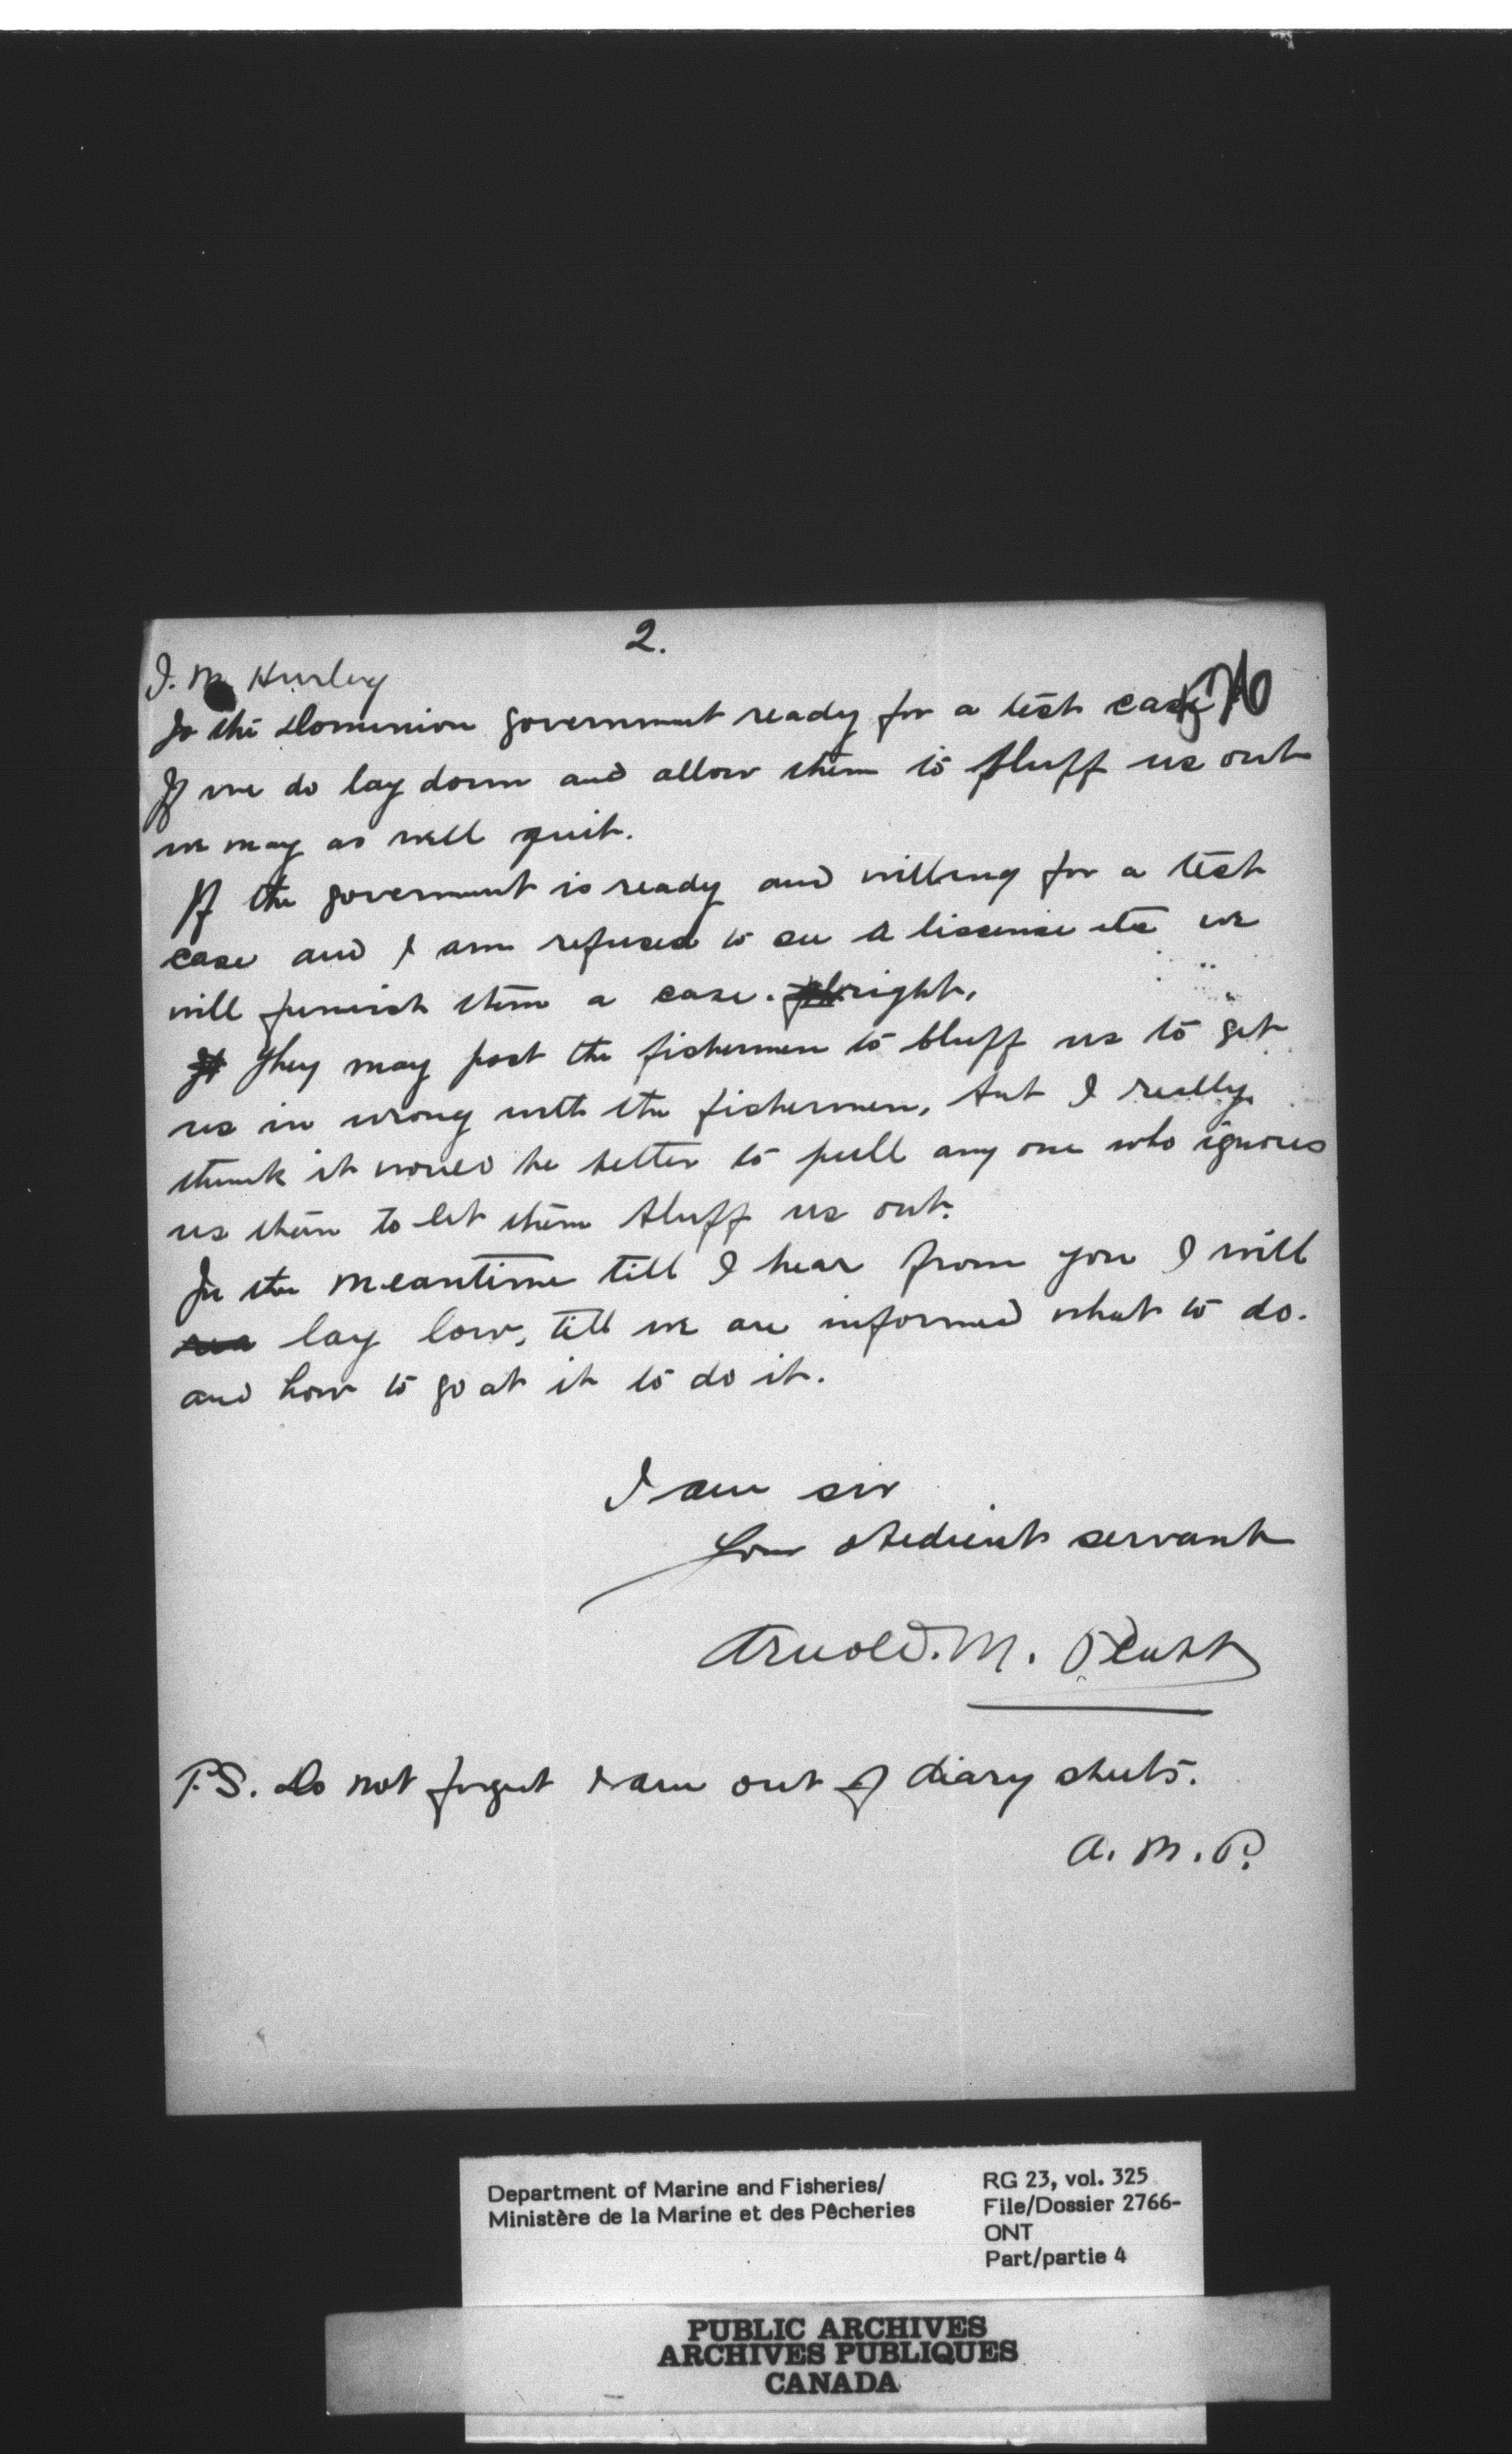 2.
J. M. Hurley
576
Is the Dominion government ready for a test case?
If we do lay down and allow them to bluff us out
we may as well quit.
If the goverment is ready and willing for a test
case and I am refused to see a liscense etc we
will furnish them a case. right.
They may post the fishermen to bluff us to get
us in wrong with the fishermen, but I really
think it would be better to pull any one who ignores
us than to let them bluff us out.
In the meantime till I hear from you I will
lay low, till we are informed what to do.
and how to go at it to do it.
I am sir
Your obedient servant
Arnold. M.
P.S. Do not forget I am out of diary sheets.
A. M. P.
Department of Marine and Fisheries/
Ministère de la Marine et des Pêcheries
RG 23, vol. 325
File/Dossier 2766-
ONT
Part/partie 4
PUBLIC ARCHIVES
ARCHIVES PUBLIQUES
CANADA